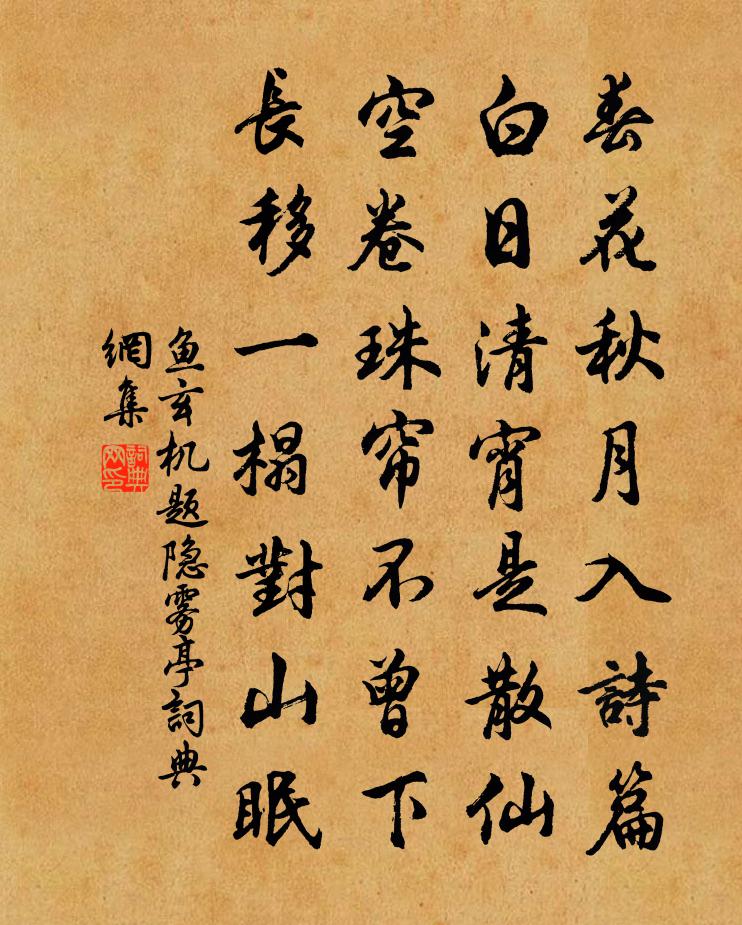 春花秋月入詩篇
白日清宵是散仙
空卷珠帘不曾下
長移一榻對山眠
鱼玄机题隐雾亭詞典
網集
詞典
网印